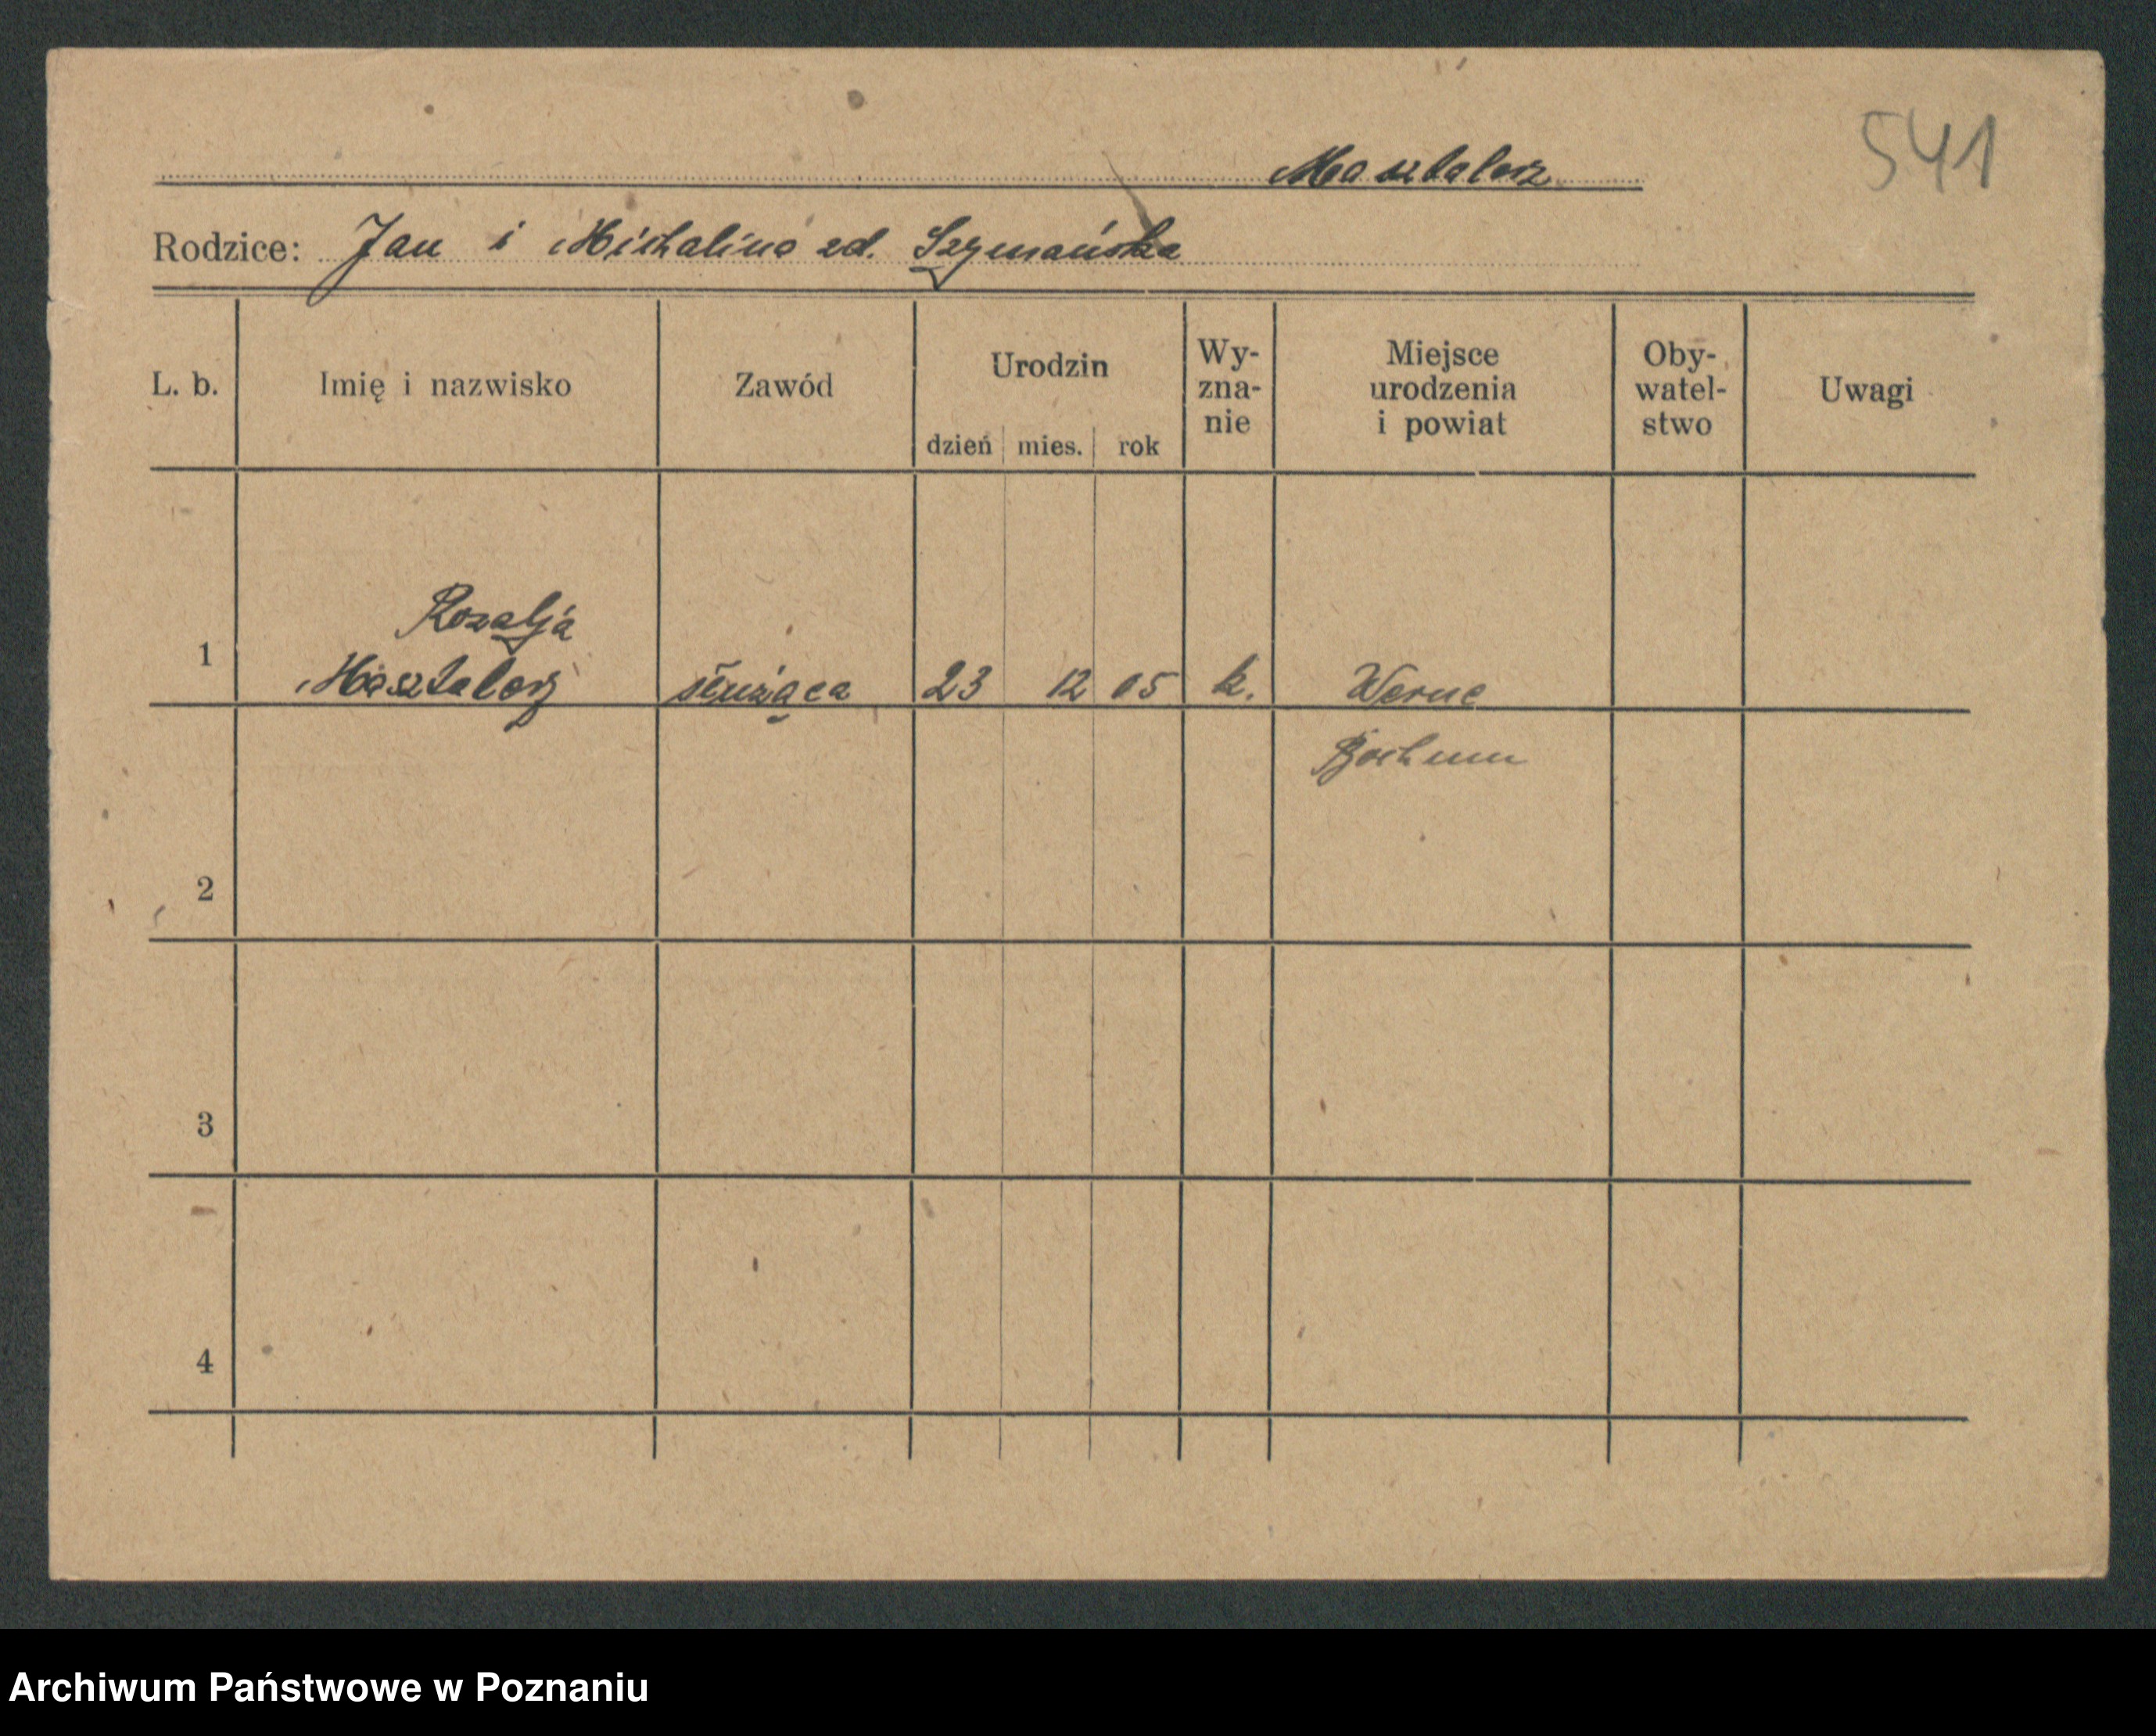 541
Masztalerz
Rodzice: Jan i Michalina zd. Szymańska
L. b.
Imię i nazwisko
Zawód
Urodzin
dzień mies. rok
Wy-
zna-
nie
Miejsce
urodzenia
i powiat
Oby-
watel-
stwo
Uwagi
Rozalja
1 Masztalerz służąca 23 12 05 k. Werne
Bochum
2
3
4
Archiwum Państwowe w Poznaniu